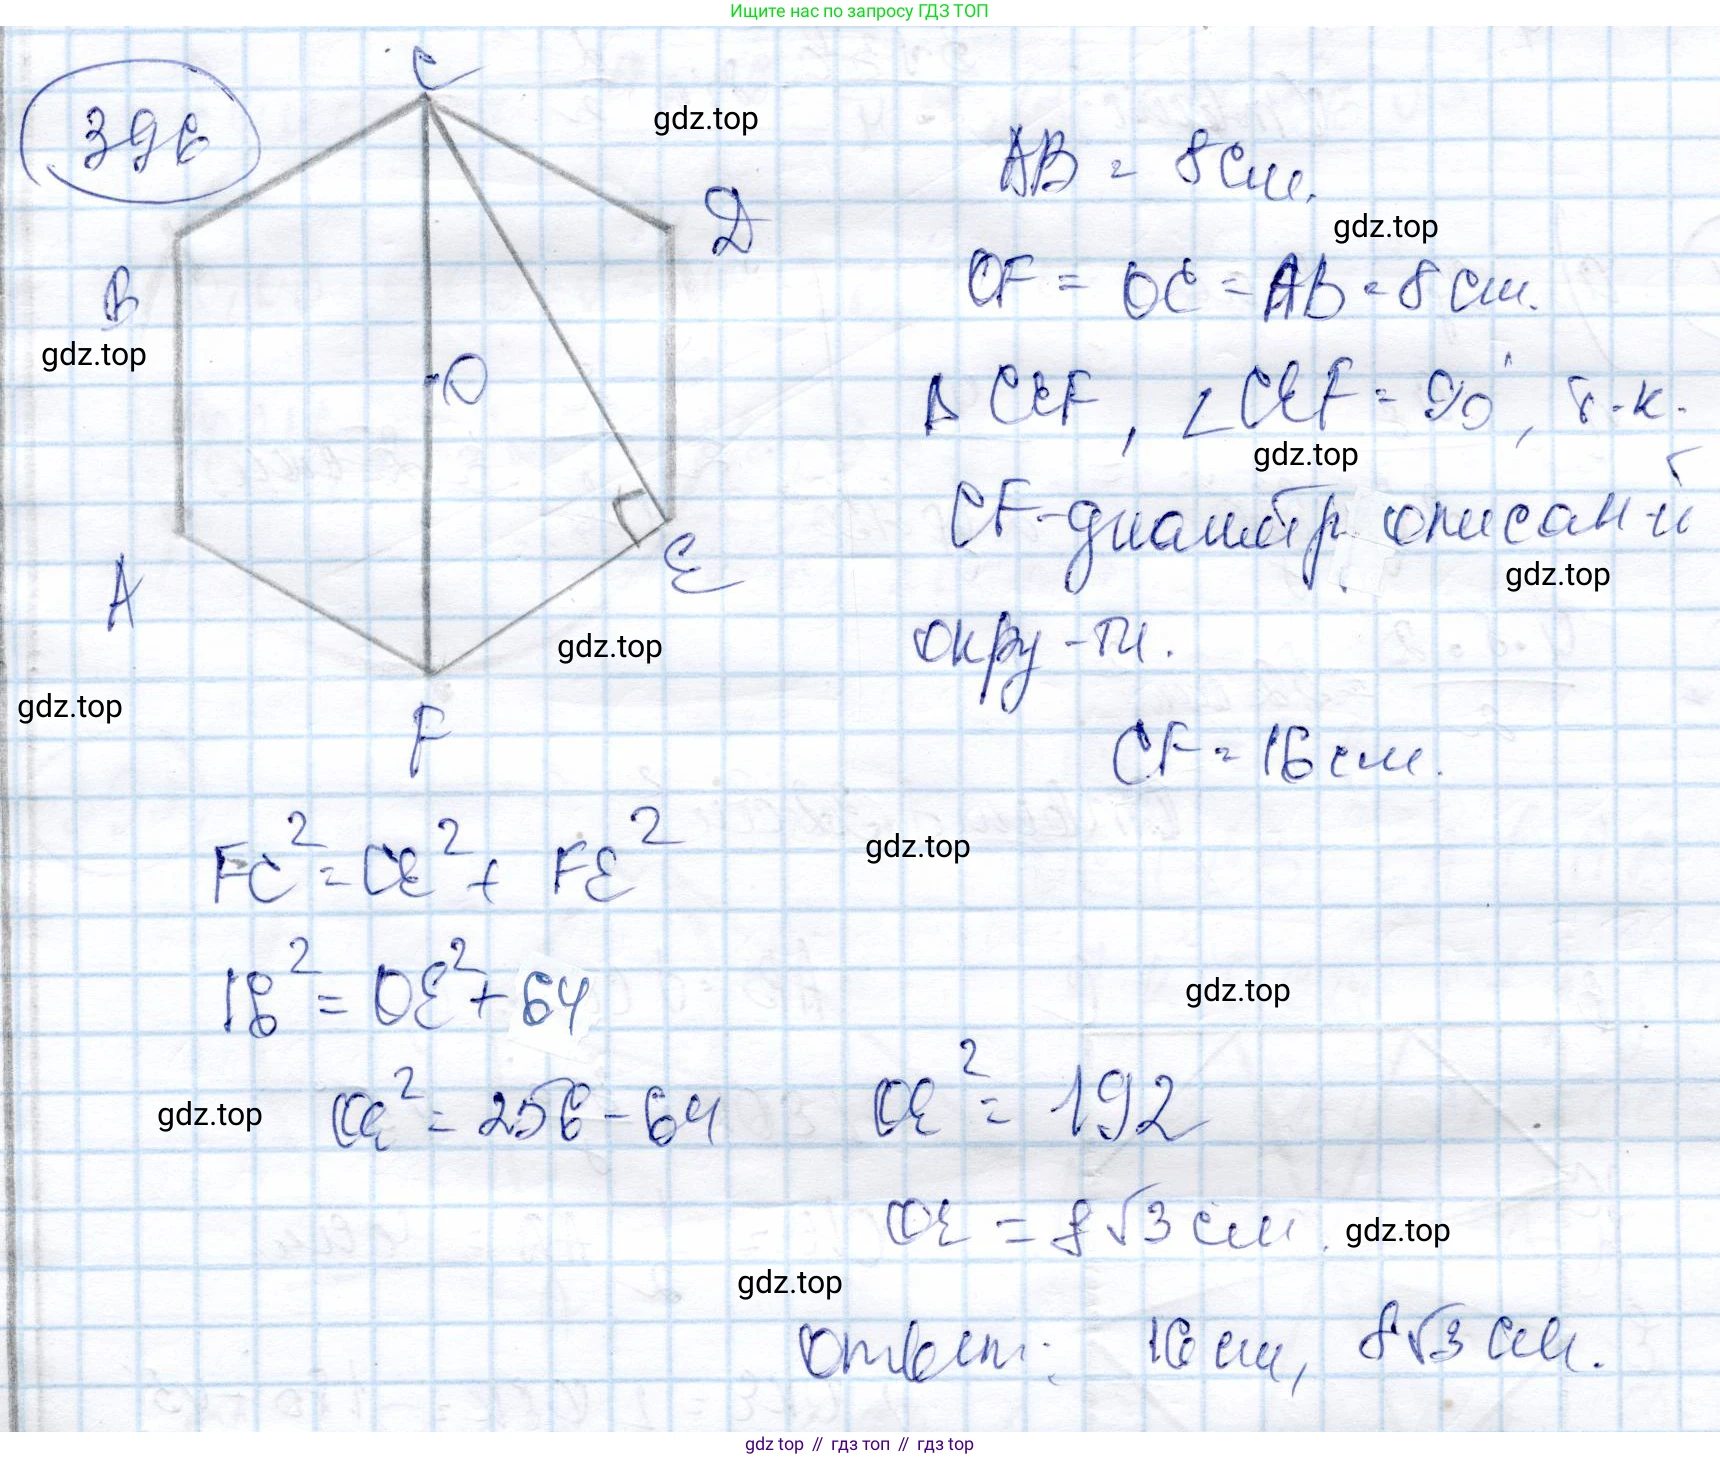 Ищите нас по запросу ГДЗ ТОП
396
C
gdz.top
AB = 8 см.
D
gdz.top
B
OF = OC = AB = 8 см.
gdz.top
O
Δ CEF, ∠CEF = 90°, т.к.
gdz.top
CF - диаметр описан-й
E
gdz.top
A
окру-ти.
gdz.top
gdz.top
F
CF = 16 см.
FC² = CE² + FE²
gdz.top
16² = CE² + 64
gdz.top
gdz.top
CE² = 256 - 64
CE² = 192
CE = 8√3 см.
gdz.top
gdz.top
Ответ: 16 см, 8√3 см.
gdz top // гдз топ // гдз top